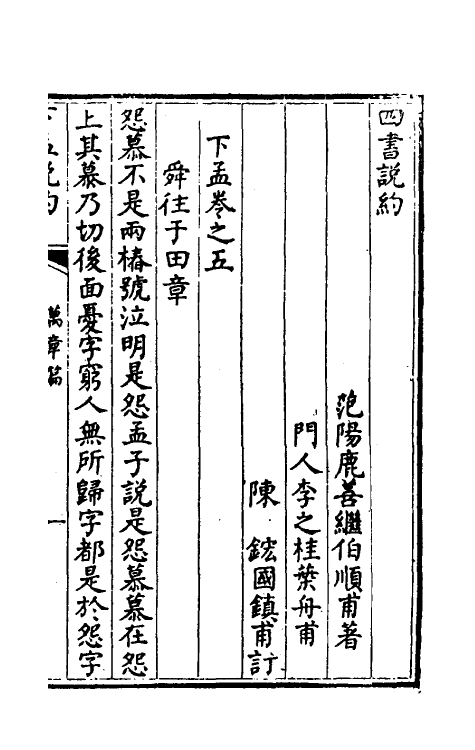 四書說約
范陽鹿善繼伯順甫著
門人李之桂葉舟甫
陳 鋐國鎮甫訂
下孟卷之五
舜往于田章
怨慕不是兩樁號泣明是怨孟子說是怨慕慕在怨
上其慕乃切後面憂字窮人無所歸字都是於怨字
下孟說約 萬章篇 一